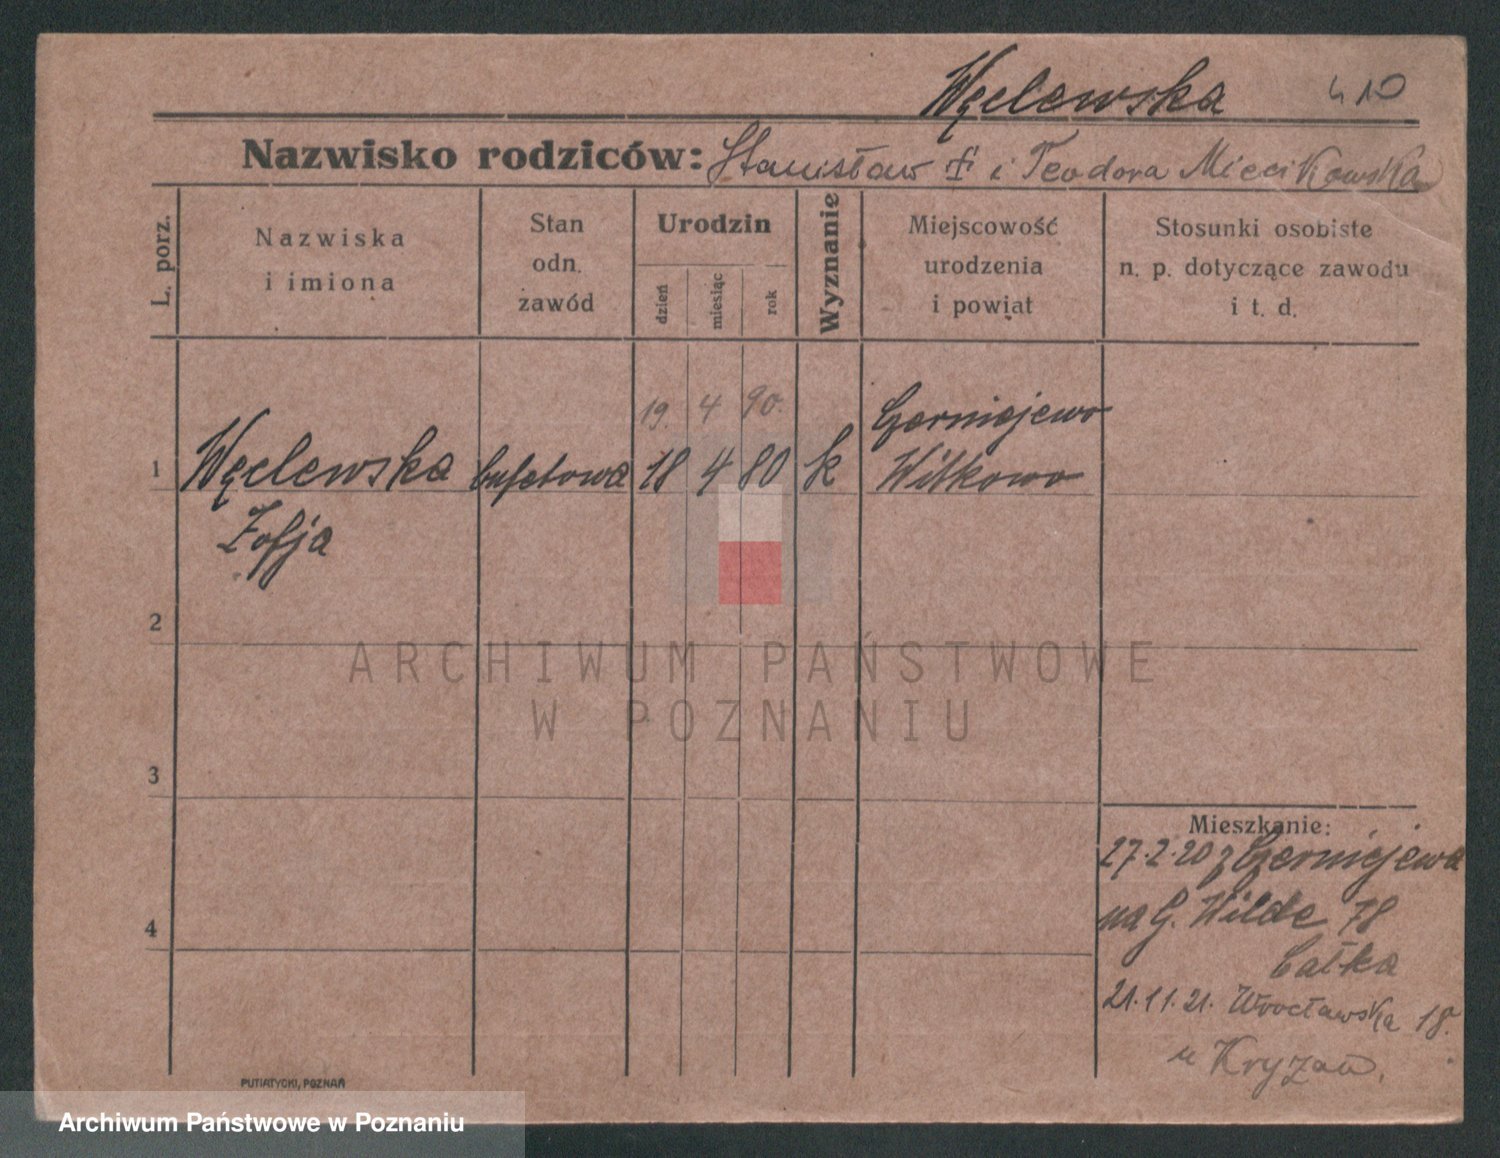 Węclewska 410
Nazwisko rodziców: Stanisław † i Teodora Miecikowska
L. porz.
Nazwiska
i imiona
Stan
odn.
zawód
Urodzin
dzień
miesiąc
rok
Wyznanie
Miejscowość
urodzenia
i powiat
Stosunki osobiste
n. p. dotyczące zawodu
i t. d.
19. 4 90.
Czerniejewo
1 Węclewska bufetowa 18 4 80 k Witkowo
Zofja
2
ARCHIWUM PAŃSTWOWE
W POZNANIU
3
Mieszkanie:
27.2.20 z Czerniejewa
na G. Wilde 78
Całka
21.11.21. Wrocławska 18.
u Kryzan.
4
PUTIATYCKI, POZNAŃ
Archiwum Państwowe w Poznaniu